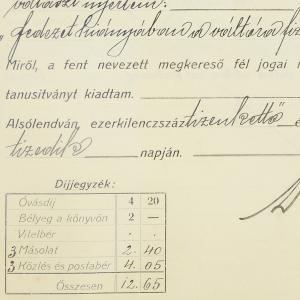 választ nyertem:
„fedezet hiányában a váltóra fiz
Miről, a fent nevezett megkereső fél jogai
tanusitványt kiadtam.
Alsólendván, ezerkilencszáz tizenkettő
tizedik napján.
Díjjegyzék:
Óvásdíj 4 20
Bélyeg a könyvön 2 —
Vitelbér . .
3 Másolat 2. 40
3 Közlés és postabér 4. 05
Összesen 12. 65